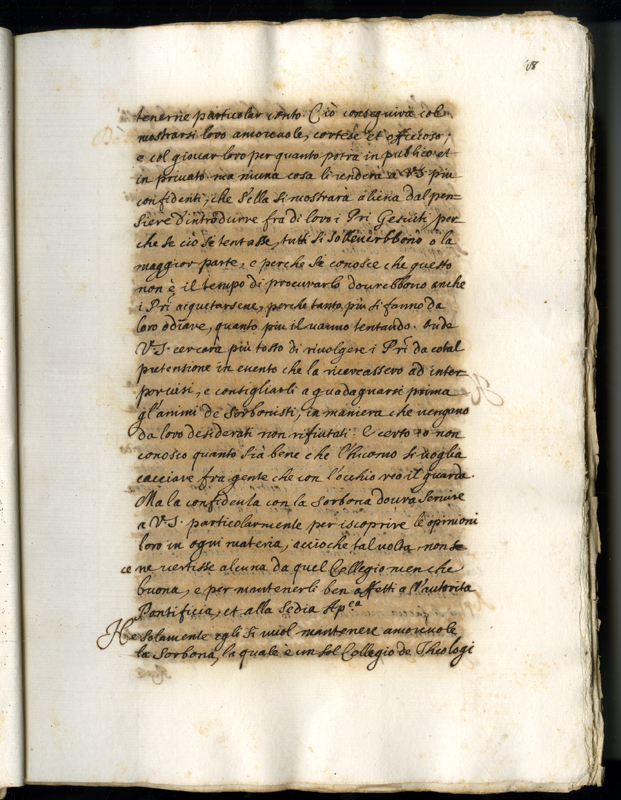 18
tenerne particolar conto. Ciò conseguirà col
mostrarsi loro amorevole, cortese et officioso;
e col giovar loro per quanto potrà in publico et
in privato. ma niuna cosa li renderà a V.S. più
confidenti, che s'ella si mostrarà aliena dal pen=
siere d'introdurre fra di loro i Pri Gesuiti per
che se ciò si tentasse, tutti si solleverebbono o la
maggior parte, e perche si conosce che questo
non è il tempo di procurarlo dovrebbono anche
i Pri aiquetarsene, perche tanto più si fanno da
loro odiare, quanto più il vanno tentando. Onde
V.S. cercarà più tosto di rivolgere i Pri da cotal
pretensione in evento che la ricercassero ad inter=
porvisi, e consigliarli a guadagnarsi prima
gl'animi de Sorbonisti, in maniera che vengano
da loro desiderati non rifiutati. E certo io non
conosco quanto sia bene che l'huomo si voglia
cacciare fra gente che con l'occhio reo il guarda.
Ma la confidenta con la Sorbona dourà servire
a V.S. particolarmente per iscoprire le opinioni
loro in ogni materia, accioche tal volta non se
ne vertisse alcuna da quel Collegio men che
buona, e per mantenerli ben affetti a l'autorità
Pontificia, et alla Sedia Ap.ca
Ne solamente egli si vuol mantenere amorevole
la Sorbona, la quale è un sol Collegio de Theologi